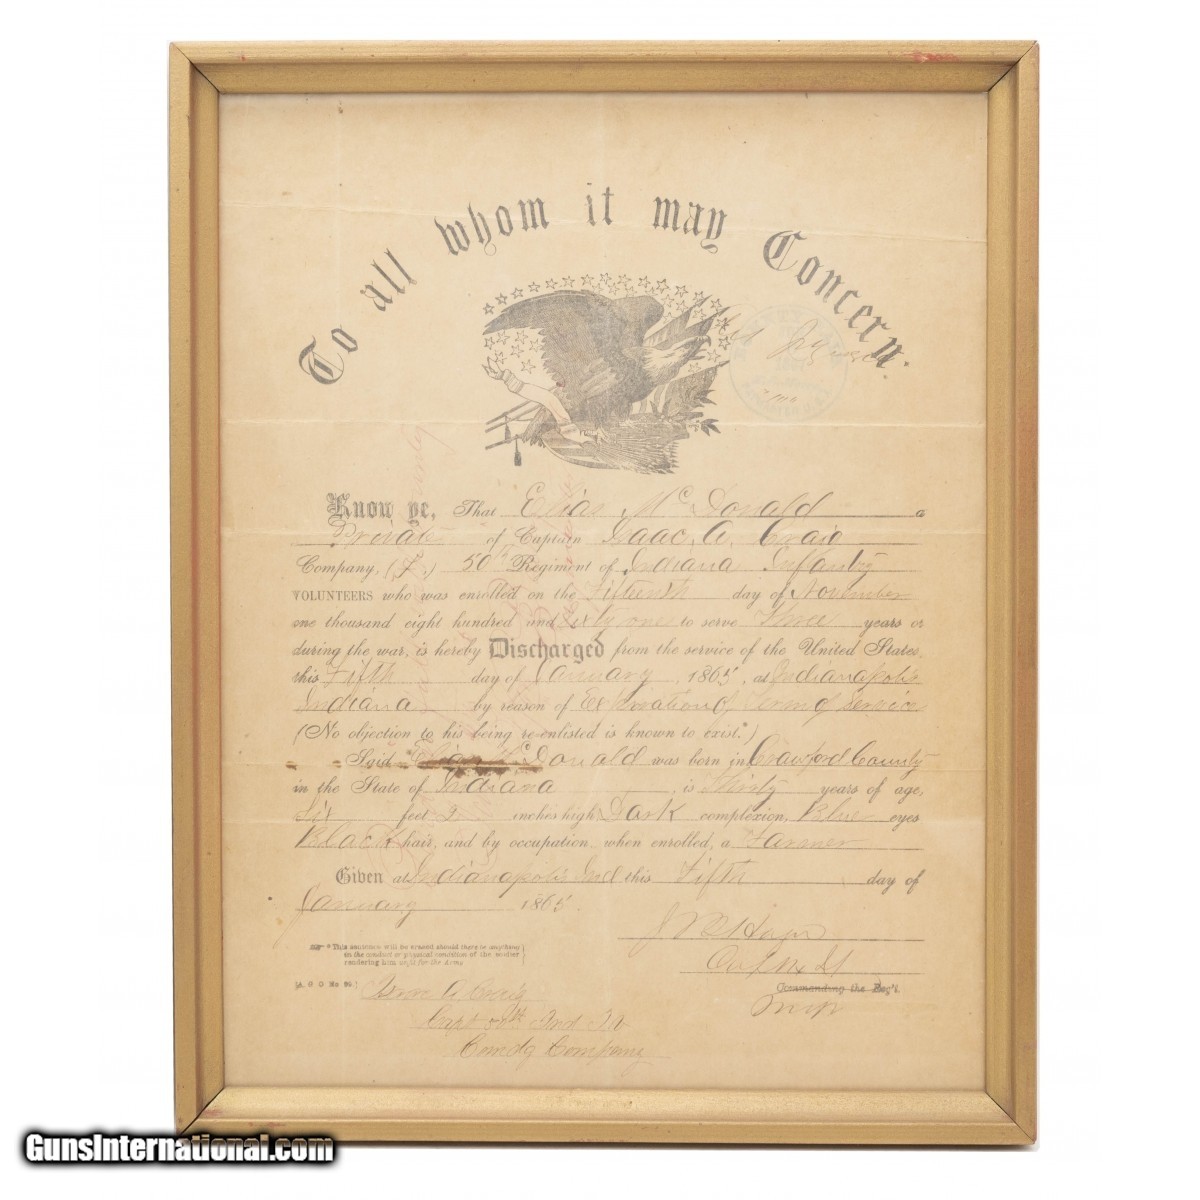 To all whom it may Concern.
Know ye, That Elias McDonald a
Private of Captain Isaac A. Craig
Company, 50th Regiment of Indiana Infantry
VOLUNTEERS who was enrolled on the Fifteenth day of November
one thousand eight hundred and sixty one to serve Three years or
during the war, is hereby Discharged from the service of the United States,
this Fifth day of January, 1865, at Indianapolis
Indiana by reason of Expiration of Term of Service
(No objection to his being re-enlisted is known to exist.*)
Said Elias McDonald was born in Crawford County
in the State of Indiana, is Thirty years of age,
Six feet 2 inches high, Dark complexion, Blue eyes
Black hair, and by occupation, when enrolled, a Farmer
Given at Indianapolis Ind this Fifth day of
January 1865.
* This sentence will be erased should there be anything
in the conduct or physical condition of the soldier
rendering him unfit for the Army.
[A. G. O. No. 99.]
Isaac A Craig
Capt 50th Ind
Comdg Company
Commanding the Reg't.
GunsInternational.com